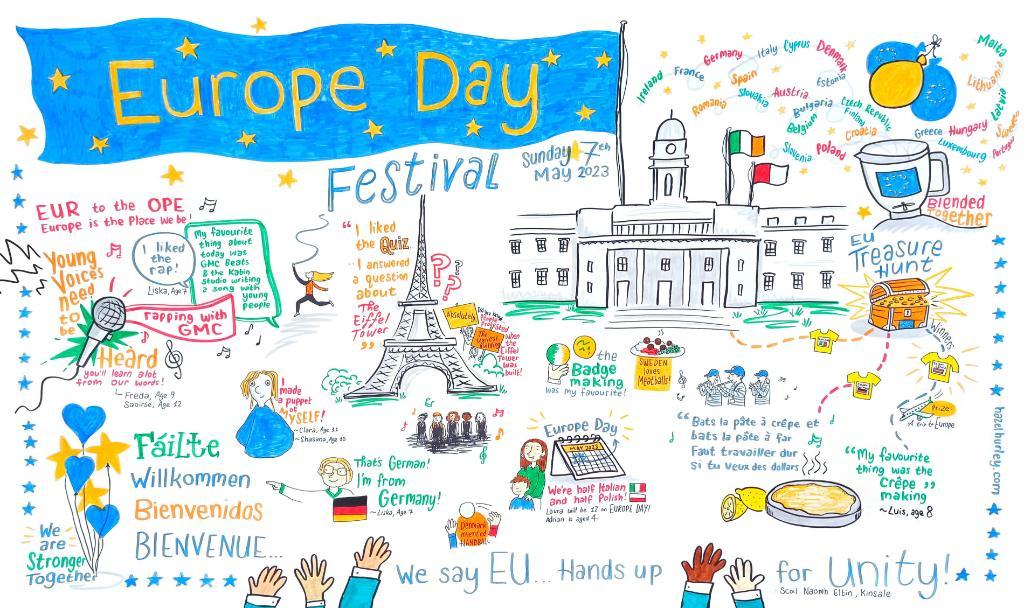 Europe Day
Festival
Sunday 7th
May 2023
Ireland
France
Germany
Italy
Cyprus
Denmark
Estonia
Spain
Slovakia
Austria
Romania
Bulgaria
Belgium
Czech Republic
Finland
Croatia
Slovenia
Poland
Greece
Hungary
Luxembourg
Malta
Lithuania
Latvia
Portugal
Blended
Together
EUR to the OPE
Europe is the Place we be!
Young
Voices
need
to
be
Heard
you'll learn alot
from our words!
- Freda, Age 9
Saoirse, Age 12
I liked
the
rap!
Liska, Age 7
rapping with
GMC
My favourite
thing about
today was
GMC Beats
& the Kabin
Studio writing
a song with
young
people
"I liked
the Quiz
I answered
a question
about
The
Eiffel
Tower"
??
Absolutely
The
Ugliest
Building
People
Protested
when the
Eiffel
Tower was
built!
EU
Treasure
Hunt
Winners
Prize
A trip to Europe
the
Badge
making
was my favourite!
SWEDEN
loves
Meatballs!
I
made
a puppet
of
MYSELF!
~ Clara, Age 11
~ Shasina, Age 10
Fáilte
Willkommen
Bienvenidos
BIENVENUE...
We
are
Stronger
Together
That's German!
I'm from
Germany!
~ Liska, Age 7
Denmark
invented
HANDBALL
Europe Day
MAY 2023
We're half Italian
and half Polish!
Laura will be 12 on EUROPE DAY!
Adrian is aged 4.
"Bats la pâte à crêpe et
bats la pâte à far
Faut travailler dur
si tu veux des dollars
"My favourite
thing was the
Crêpe"
making
~ Luis, age 8
hazelhurley.com
We say EU... Hands up for Unity!
- Scoil Naomh Eltin, Kinsale